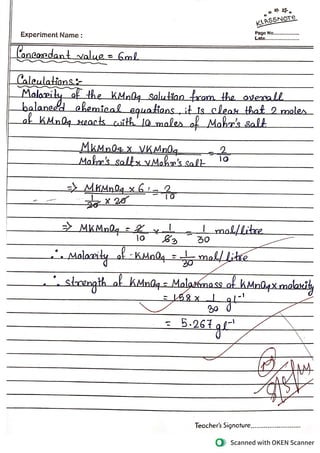 KLASSNOTE
Experiment Name :
Page No.
Date
Concordant value = 6ml
Calculations:-
Molarity of the KMnO4 solution from the overall
balanced chemical equations, it is clear that 2 moles
of KMnO4 reacts with 10 moles of Mohr's salt
MKMnO4 x VKMnO4 / Mohr's salt x VMohr's salt = 2/10
=> MKMnO4 x 6 / 1/20 x 20 = 2/10
=> MKMnO4 = 2/10 x 1/63 = 1/30 mol/litre
∴ Molarity of KMnO4 = 1/30 mol/litre
∴ strength of KMnO4 = Molarmass of KMnO4 x molarity
= 158 x 1/30 gl⁻¹
= 5.267 gl⁻¹
Teacher's Signature
Scanned with OKEN Scanner